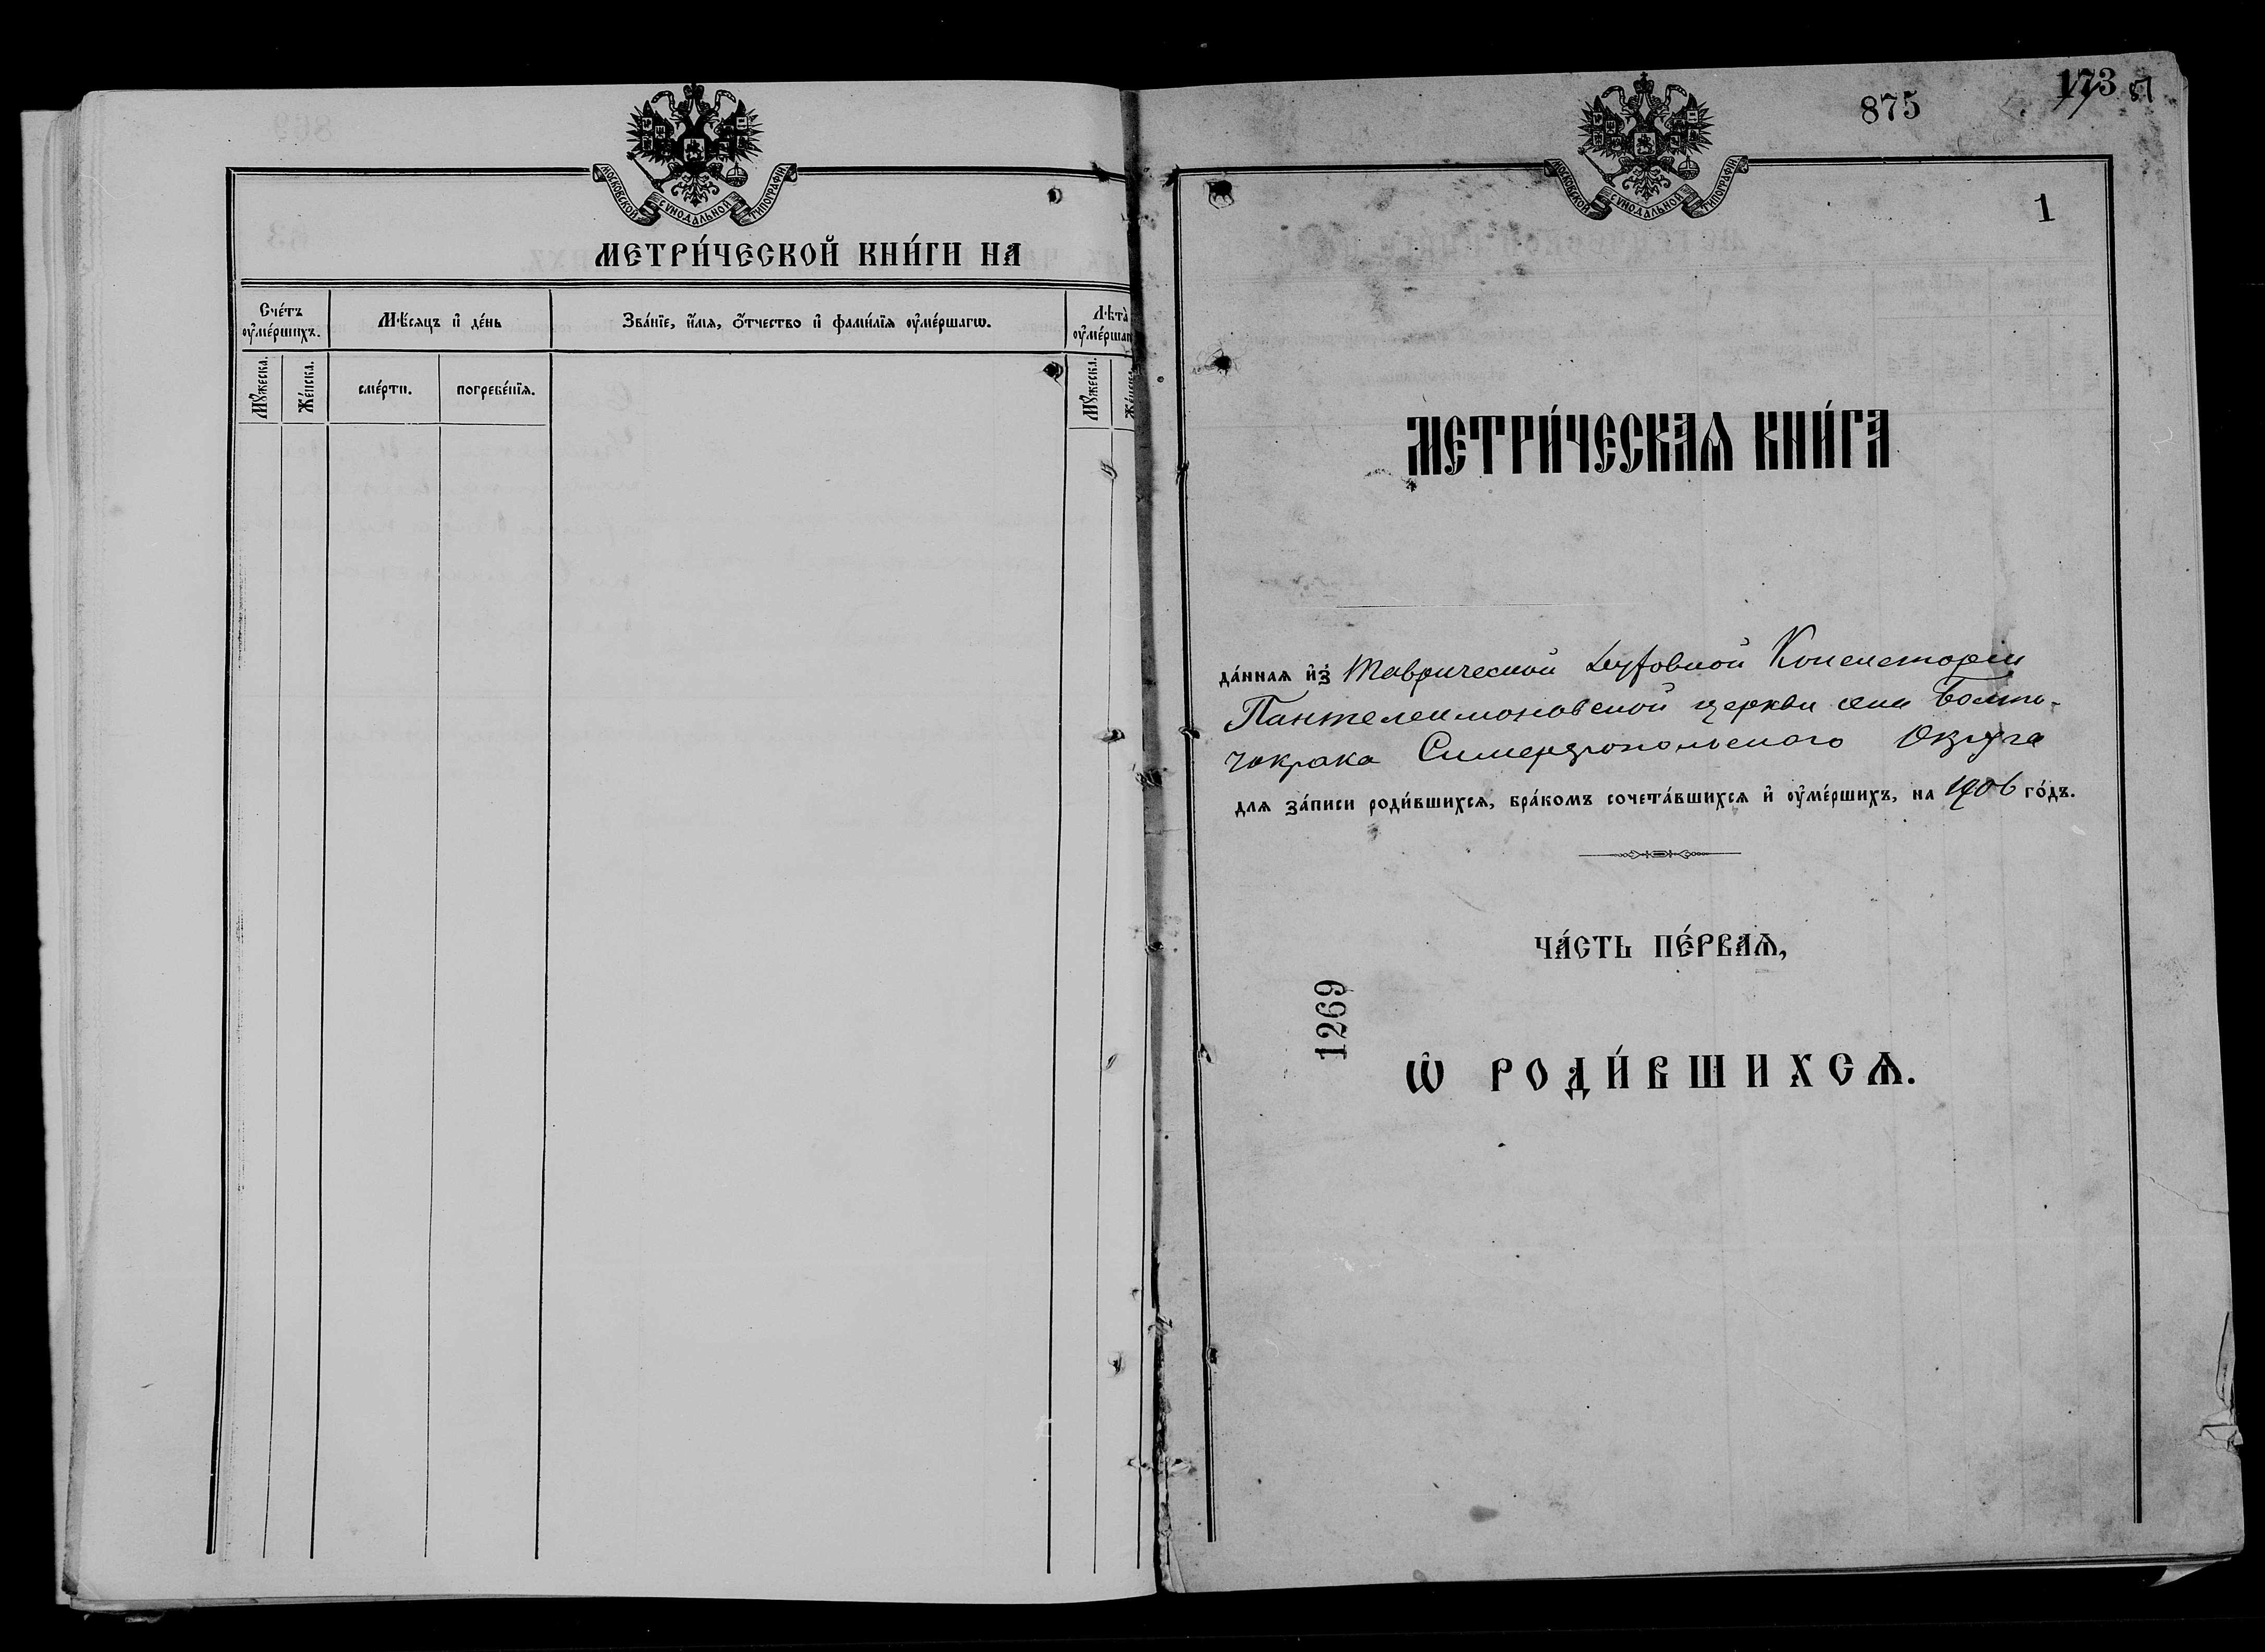 МОСКОВСКОЙ СѴНОДАЛЬНОЙ ТИПОГРАФІИ
МЕТРИ́ЧЕСКОЙ КНИ́ГИ НА
Сче́тъ ᲂу҆ме́ршихъ.
Мѣ́сяцъ и҆ де́нь
Зва́нїе, и҆́мѧ, ѻ҆́тчество и҆ фами́лїѧ ᲂу҆ме́ршагѡ.
Лѣта̀
Мꙋ́жеска.
Же́нска.
сме́рти.
погребе́нїѧ.
Мꙋ́жеска.
875
173
МОСКОВСКОЙ СѴНОДАЛЬНОЙ ТИПОГРАФІИ
1
МЕТРИ́ЧЕСКАѦ КНИ́ГА
да́ннаѧ и҆з̾ Таврической Духовной Консистории
Пантелеимоновской церкви села Болты-
чокрака Симферопольского Округа
для за́писи роди́вшихсѧ, бра́комъ сочета́вшихсѧ и҆ ᲂу҆ме́ршихъ, на 1906 го́дъ.
ЧА́СТЬ ПЕ́РВАѦ,
1269
Ѡ҆ РОДИ́ВШИХСѦ.